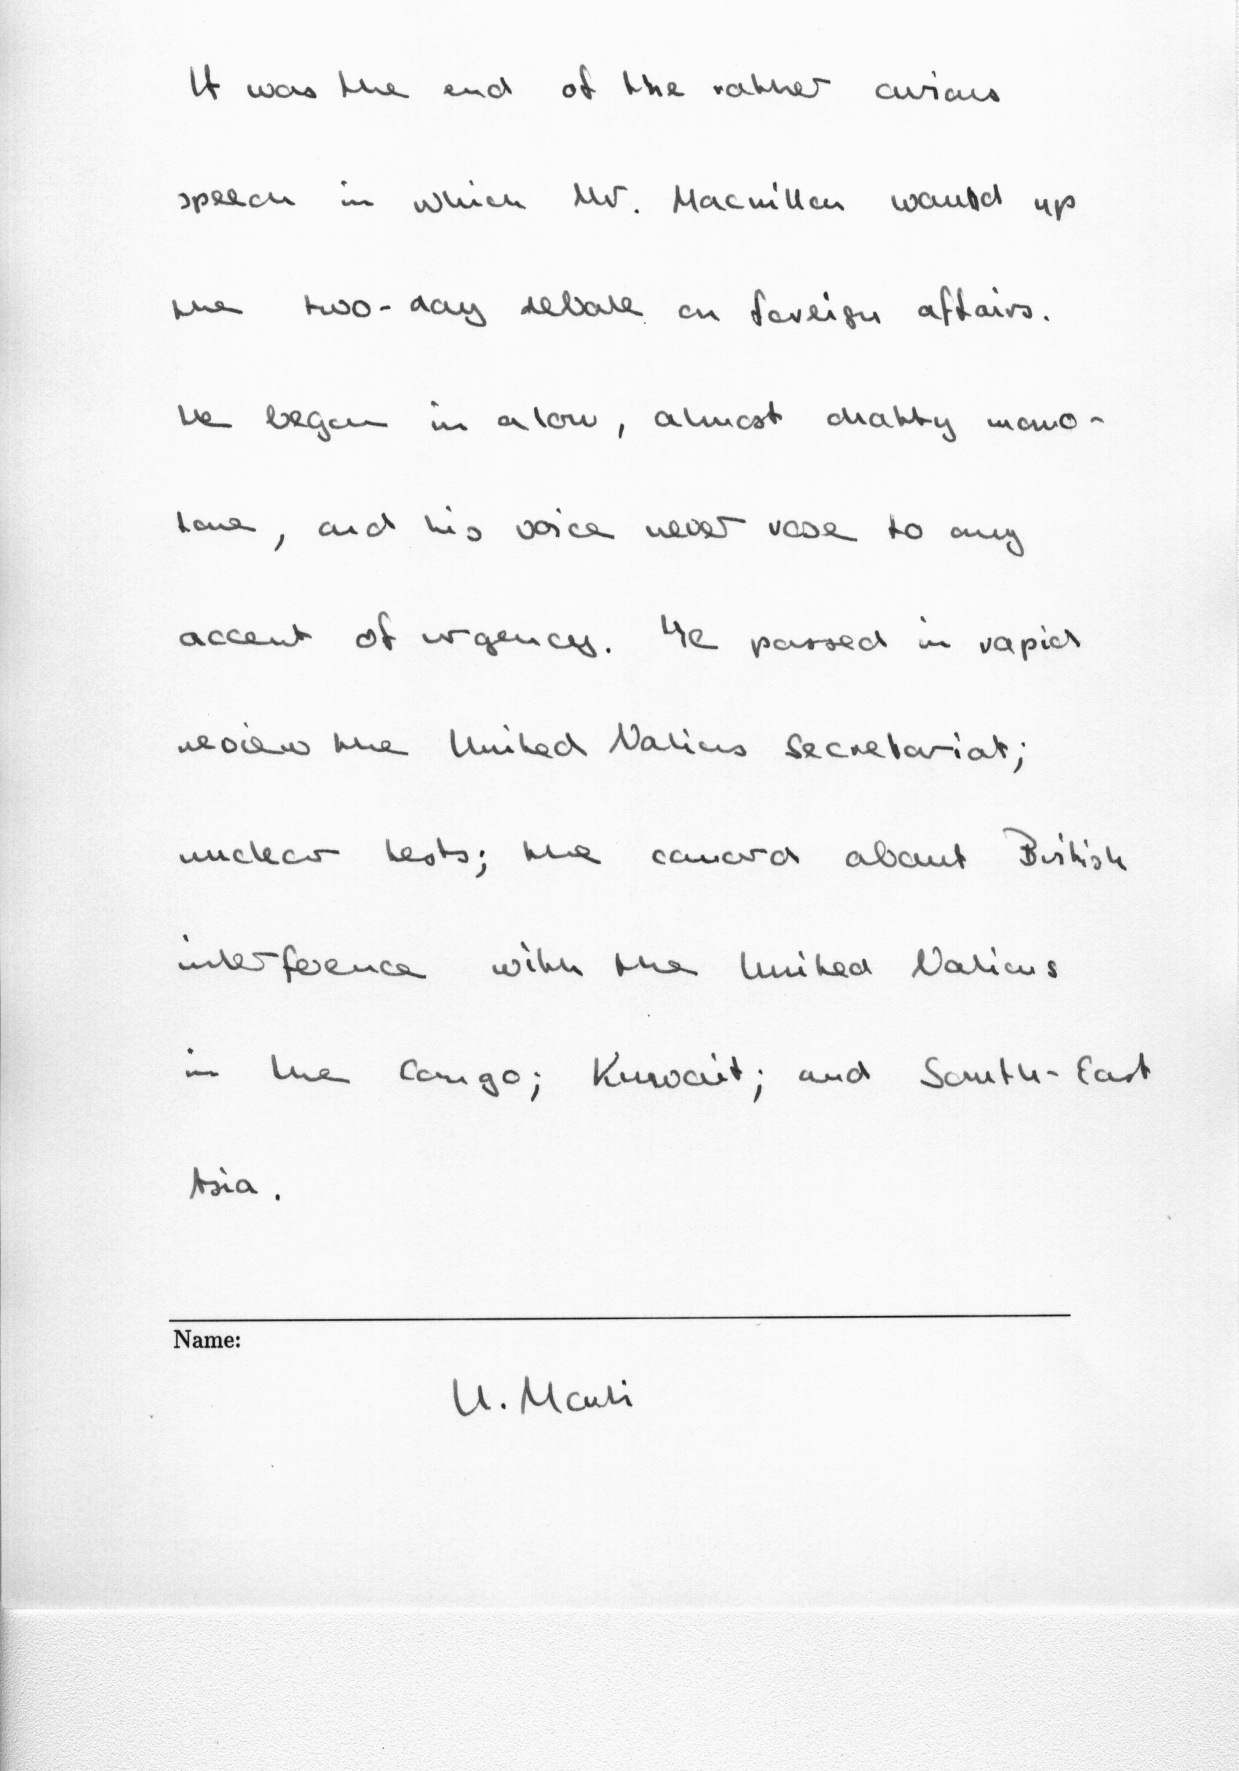 It was the end of the rather curious
speech in which Mr. Macmillan wound up
the two-day debate on foreign affairs.
He began in a low, almost chatty mono-
tone, and his voice never rose to any
accent of urgency. He passed in rapid
review the United Nations Secretariat;
nuclear tests; the canard about British
interference with the United Nations
in the Congo; Kuwait; and South-East
Asia.
Name:
U.